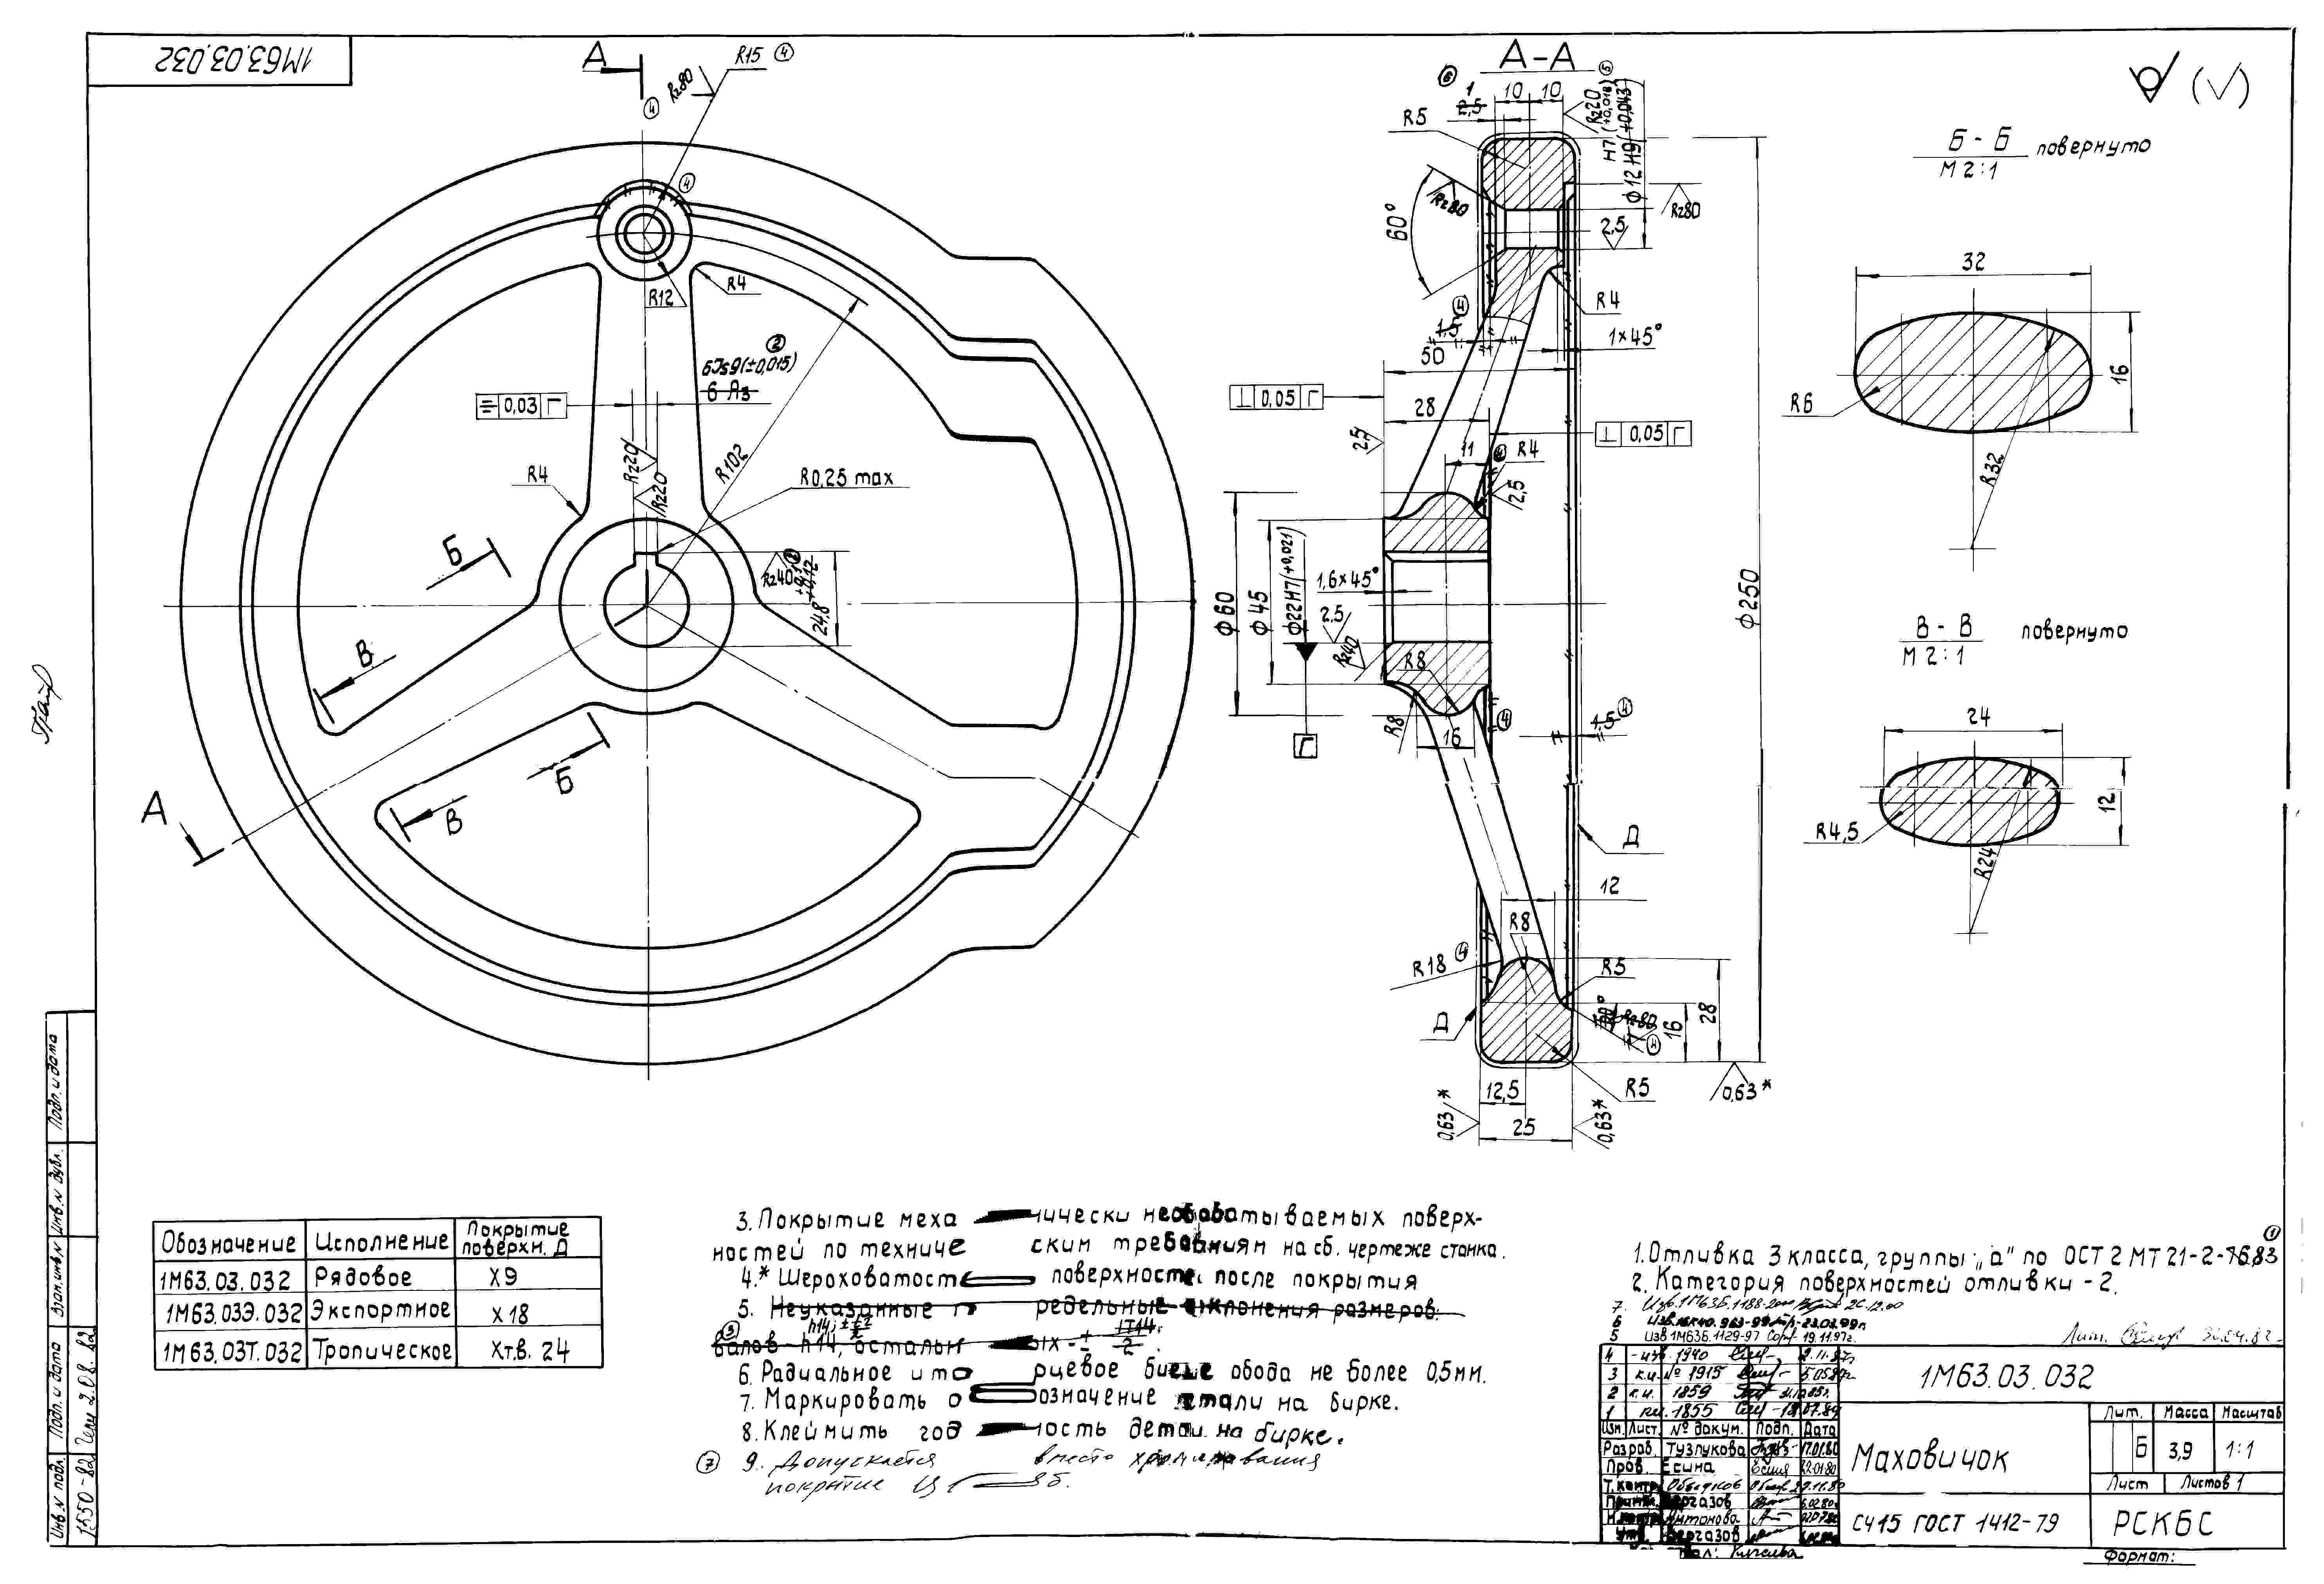 1М63.03.032
А
R15 ④
④ Rz80
④
R12
R4
6Js9(±0,015) ②
6 А3
0,03 Г
Rz20
Rz20
R102
R0,25 max
R4
Rz40
24,8
+0,12
Б
В
Б
В
А
А-А
⑥ 1
2,5
10 10
Rz20
H7 (+0,018) ⑤
ф12 H9 (+0,043)
R5
60°
Rz80
Rz80
2,5
④
1,5
R4
1×45°
50
⊥ 0,05 Г
28
⊥ 0,05 Г
2,5
11
④ R4
2,5
ф60
ф45
ф22H7(+0,021)
1,6×45°
2,5
Rz40
Г
R8
R8
16
④
1,5 ④
ф250
Д
12
R8
R18 ④
R5
Д
Rz80
④
16
28
R5
0,63*
12,5
25
0,63*
0,63*
(√)
Б - Б повернуто
М 2:1
32
16
R6
R32
В - В повернуто
М 2:1
24
12
R4,5
R24
Обозначение Исполнение Покрытие поверхн. Д
1М63.03.032 Рядовое Х9
1М63.03Э.032 Экспортное Х18
1М63.03Т.032 Тропическое Хтв. 24
3. Покрытие механически необрабатываемых поверх-
ностей по техническим требованиям на сб. чертеже станка.
4.* Шероховатость поверхности после покрытия
5. Неуказанные предельные отклонения размеров:
③ валов - h14, остальных ± IT14/2.
6. Радиальное и торцевое биение обода не более 0,5мм.
7. Маркировать обозначение детали на бирке.
8. Клеймить годность детали на бирке.
⑦ 9. Допускается вместо хромирования
покрытие
①
1. Отливка 3 класса, группы „а" по ОСТ 2 МТ 21-2-76.83
2. Категория поверхностей отливки - 2.
7. Изв. 1М63Б.1188-2000 26.12.00
6
5 Изв 1М63Б.1129-97 19.11.97г.
4 - изв. 1940
3 к.и. № 1915
2 к.и. 1859
1 ки. 1855
Изм. Лист. № докум. Подп. Дата
Разраб. Тузлукова 17.01.80
Пров. Есина 22.01.80
Т.контр
Антонова
1М63.03.032
Маховичок
Лит. Масса Масштаб
Б 3,9 1:1
Лист Листов 1
СЧ15 ГОСТ 1412-79
РСКБС
Формат:
Инв.N подл. Подп. и дата Взам.инв.N Инв.N дубл. Подп. и дата
1550-82 2.08.82